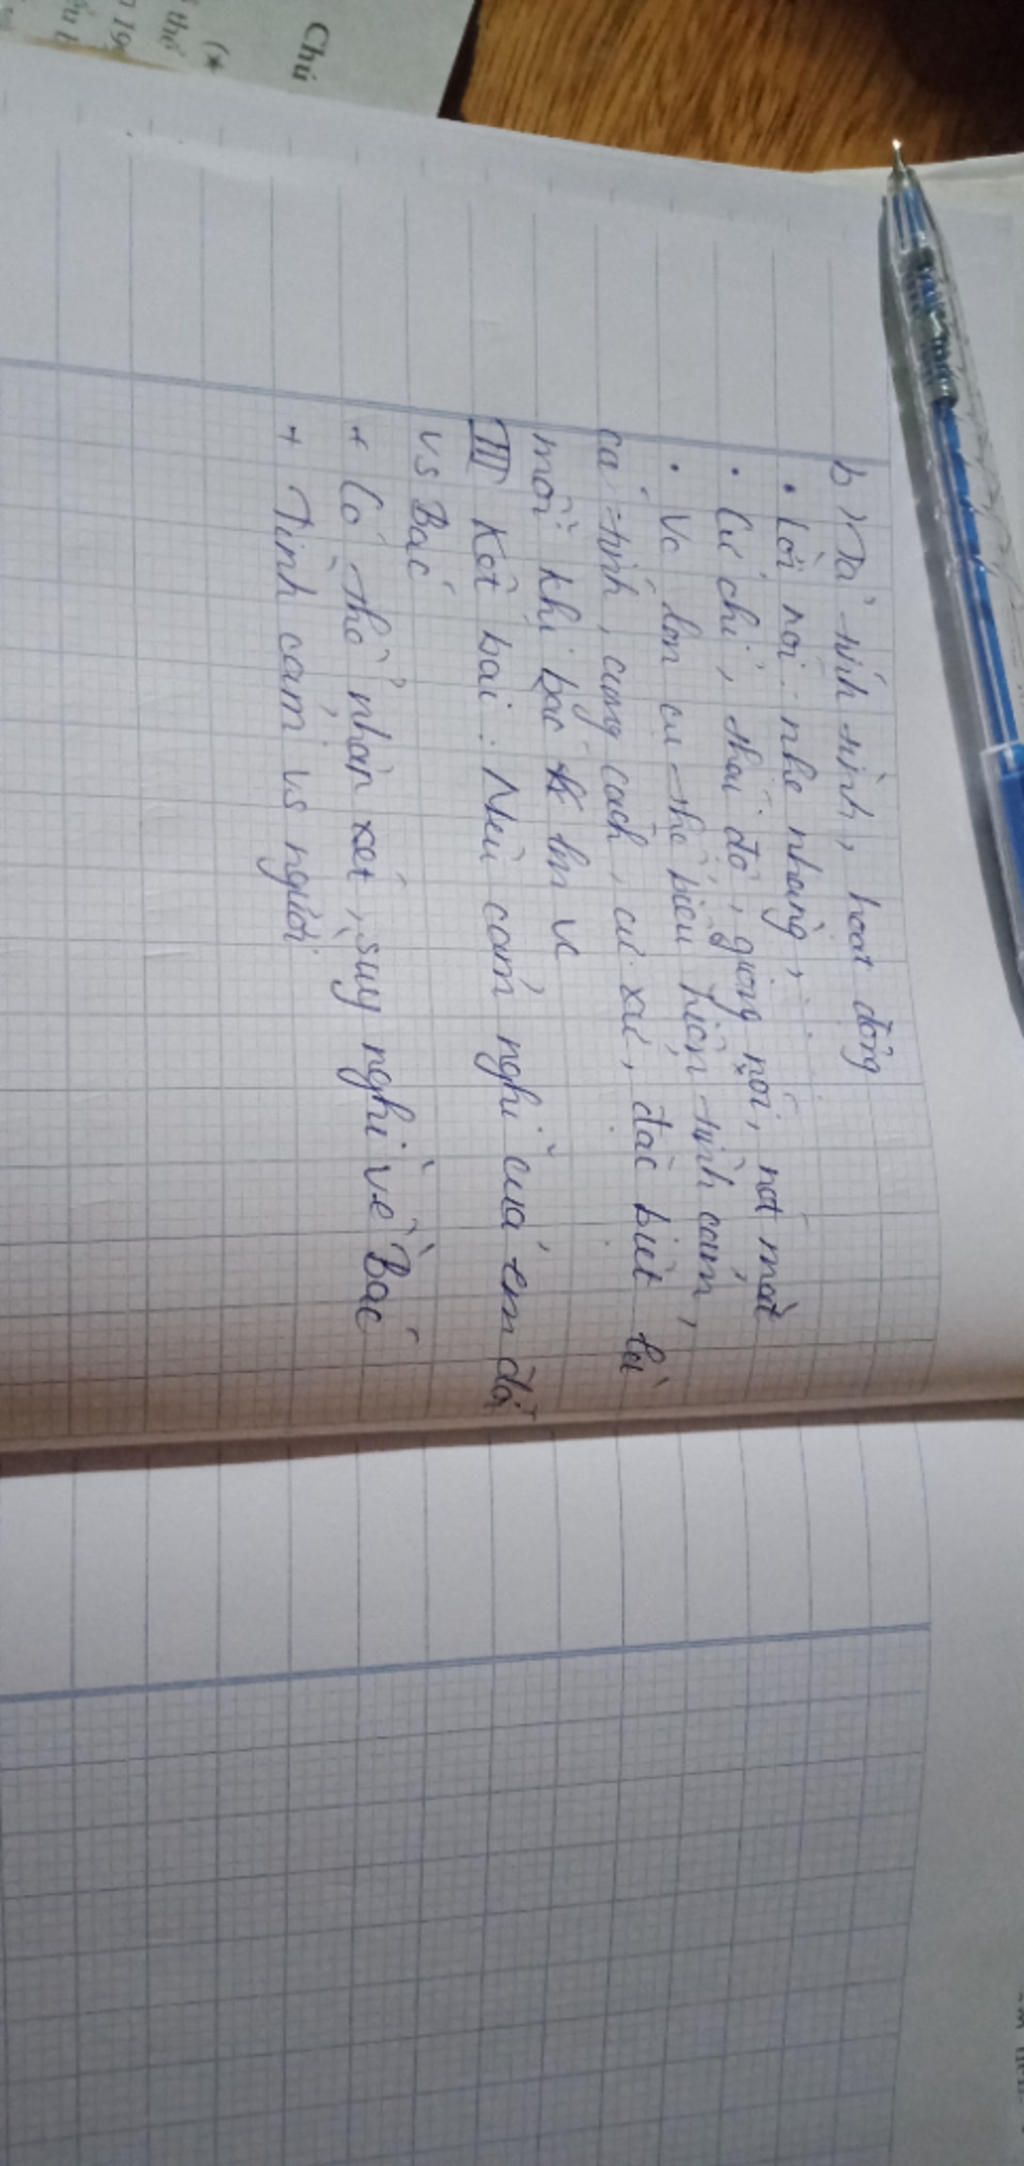 b) Tả tính tình, hoạt động
• Lời nói: nhẹ nhàng,
• Cử chỉ, thái độ, giọng nói, nét mặt
• Vc làm cụ thể biểu hiện tình cảm,
cá tính, cung cách, cư xử, đặc biệt là
mỗi khi bác ấy lm vc
III Kết bài: Nêu cảm nghĩ của em đối
vs Bác
+ Có thể nhận xét, suy nghĩ về Bác
+ Tình cảm vs người
Chú
(*
thể